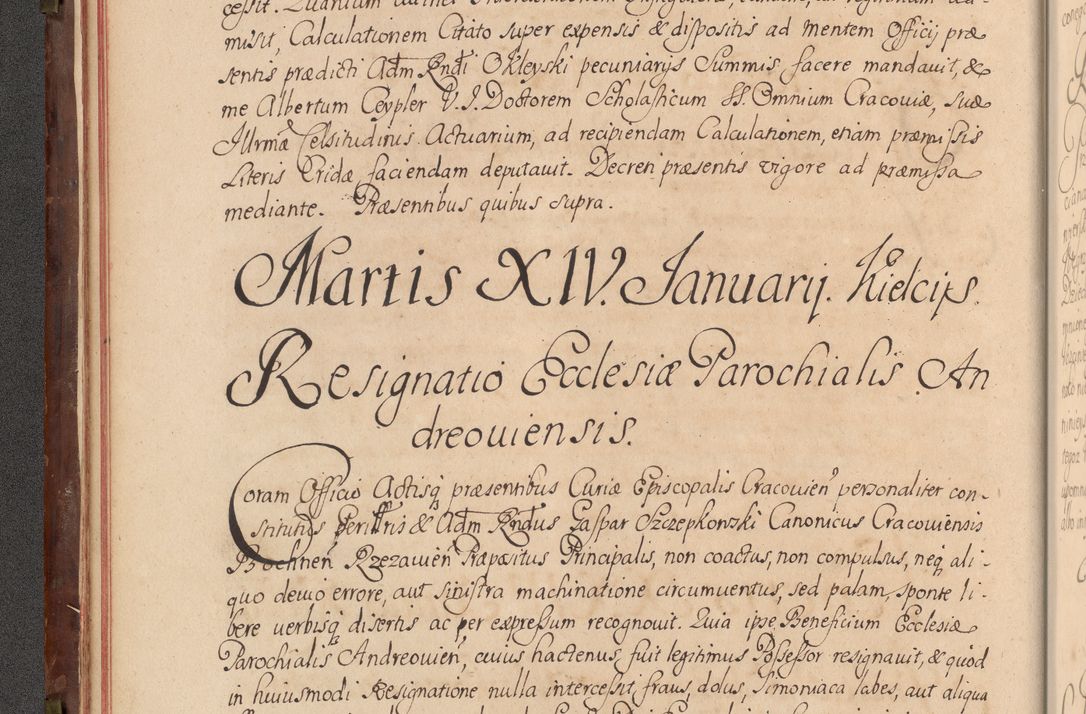 musit, Calculationem Citato super expensis & dispositis ad mentem Officij præ
sentis prædicti Adm Rndi Okleyski pecuniarijs Summis facere mandavit, &
me Albertum Ceypler V. I. Doctorem Scholasticum SS. Omnium Cracoviæ, suæ
Illrmæ Celsitudinis Actuarium, ad recipiendam Calculationem, etiam præmissis
Literis Cridæ faciendam deputavit. Decreti præsentis vigore ad præmissa
mediante. Præsentibus quibus supra.
Martis XIV. Januarij. Kielcijs.
Resignatio Ecclesiæ Parochialis An
dreouiensis.
Coram Officio Actisq præsentibus Curiæ Episcopalis Cracouien personaliter con-
stitutus Perillris & Adm Rndus Gaspar Szczepkonzski Canonicus Cracouiensis
Bochnen Rzezauien Præpositus Principalis, non coactus, non compulsus, neq ali-
quo devio errore, aut sinistra machinatione circumventus, sed palam, sponte li-
bere verbisq disertis ac per expressum recognovit. Quia ipse Beneficium Ecclesiæ
Parochialis Andreouien, cuius hactenus fuit legitimus Possessor resignavit, & quod
in huiusmodi Resignatione nulla intercessit fraus, dolus, Simoniaca labes, aut aliqua